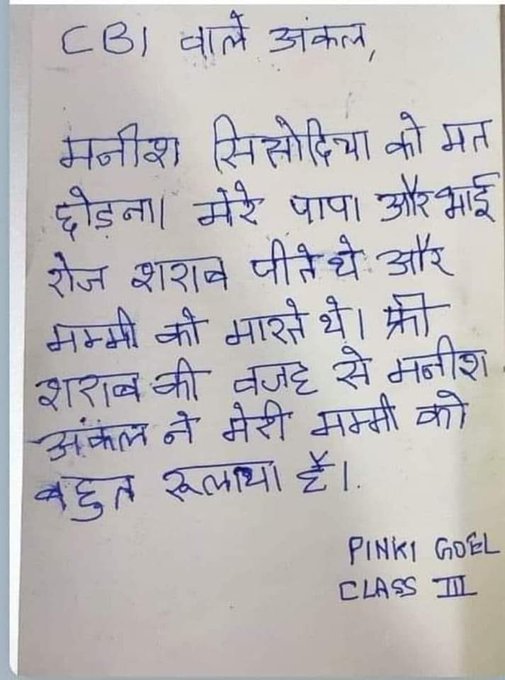 CBI वाले अंकल,
मनीश सिसोदिया को मत
छोड़ना। मेरे पापा और भाई
रोज शराब पीते थे और
मम्मी को मारते थे। फ्री
शराब की वजह से मनीश
अंकल ने मेरी मम्मी को
बहुत रूलाया हैं।
PINKI GOEL
CLASS III